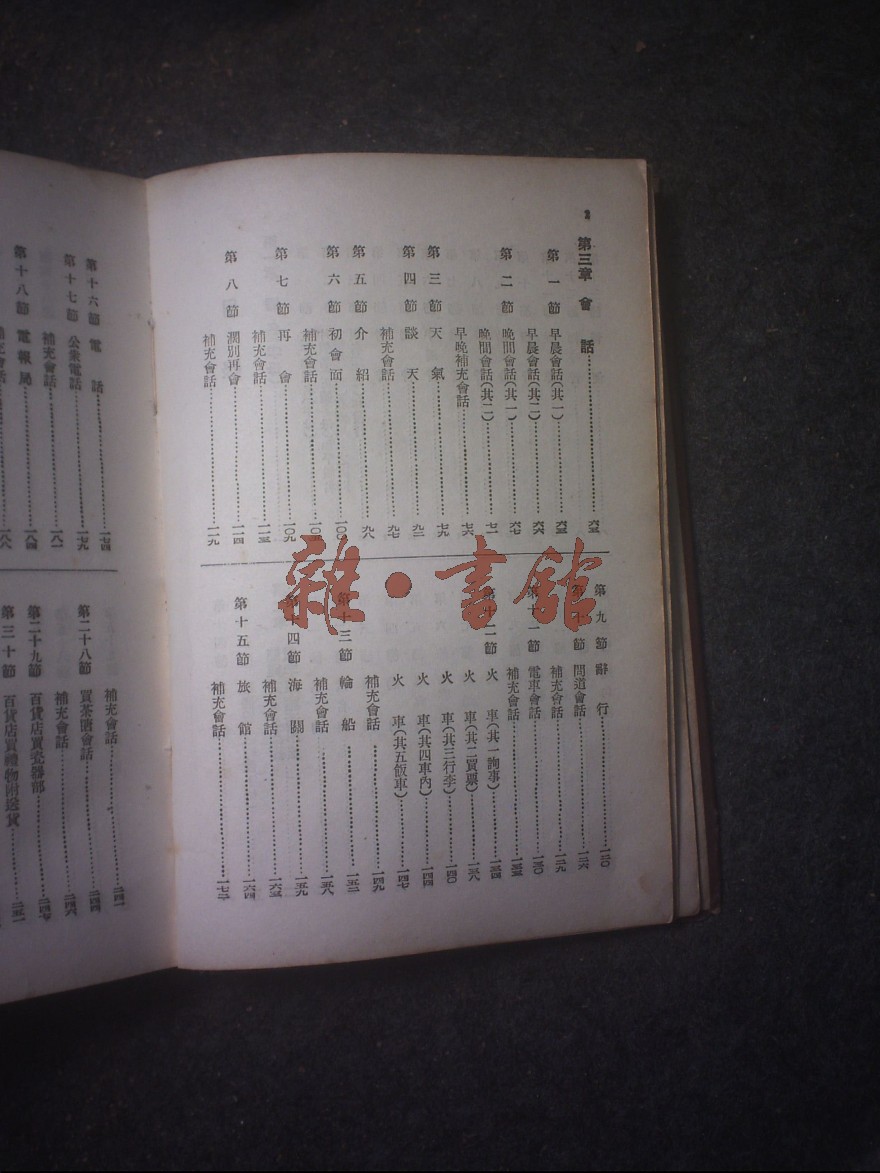 2
第三章 會 話……六五
第一節 早晨會話(其一)……六五
早晨會話(其二)……六六
第二節 晚間會話(其一)……六七
晚間會話(其二)……七一
早晚補充會話……七六
第三節 天氣……七九
第四節 談天……九二
補充會話……九七
第五節 介紹……九八
第六節 初會面……一〇〇
補充會話……一〇五
第七節 再會……一〇九
補充會話……一一五
第八節 濶別再會……一一四
補充會話……一一九
第九節 辭行……一二〇
第十節 問道會話……一二六
補充會話……一二九
第十一節 電車會話……一三〇
補充會話……一三三
第十二節 火車(其一詢事)……一三四
火車(其二買票)……一三八
火車(其三行李)……一四〇
火車(其四車內)……一四四
火車(其五飯車)……一四七
補充會話……一四九
第十三節 輪船……一五二
補充會話……一五八
第十四節 海關……一五九
補充會話……一六三
第十五節 旅館……一六四
補充會話……一七二
第十六節 電話……一七四
第十七節 公衆電話……一七九
補充會話……一八一
第十八節 電報局……一八四
補充會話……一八六
補充會話……二四一
第二十八節 買茶店會話……二四四
補充會話……二四六
第二十九節 百貨店買瓷器部……二四七
第三十節 百貨店買禮物附送貨……二五一
雜·書館